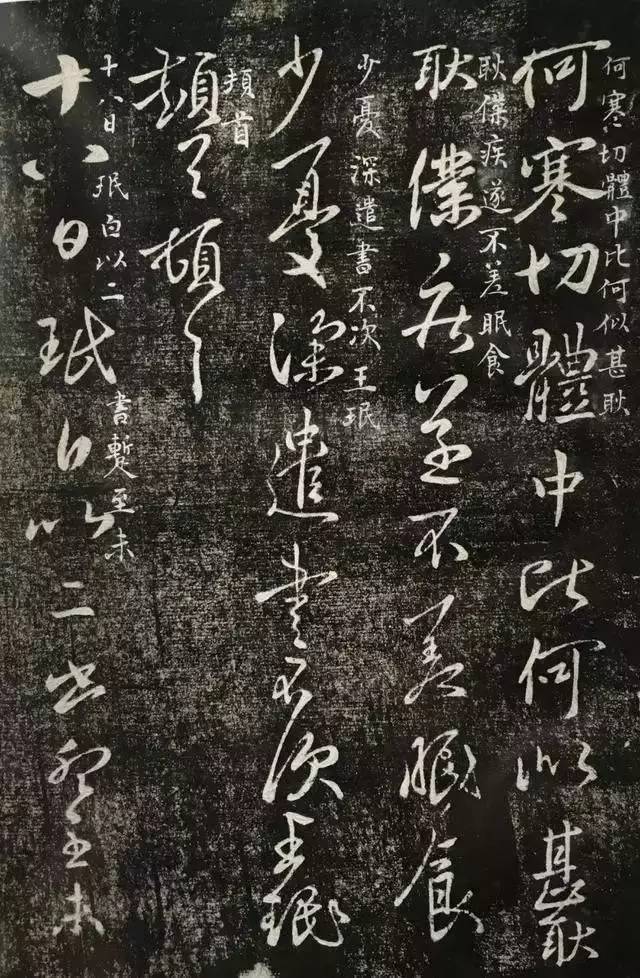 何寒〻切體中比何似甚耿
何寒切體中比何似甚耿
耿僕疾遂不差眠食
耿僕疾遂不差眠食
少憂深遣書不次王珉
少憂深遣書不次王珉
頓首
頓首頓首
十八日珉白以二書暫至未
十八日珉白以二書暫至未